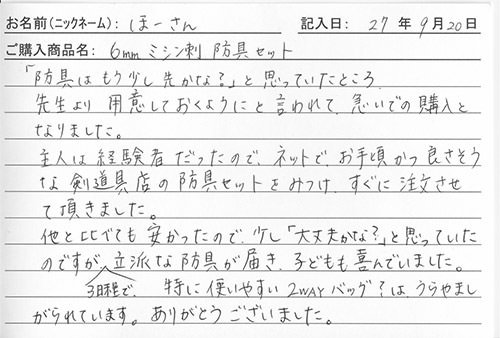 お名前(ニックネーム): ほーさん 記入日: 27年9月20日
ご購入商品名: 6mmミシン刺 防具セット
「防具はもう少し先かな?」と思っていたところ、
先生より 用意しておくようにと言われて、急いでの購入と
なりました。
主人は経験者だったので、ネットで、お手頃かつ良さそう
な剣道具店の防具セットをみつけ、すぐに注文させ
て頂きました。
他と比べても安かったので、少し「大丈夫かな?」と思っていた
のですが、立派な防具が届き、子どもも喜んでいました。
3日程で、 特に使いやすい2WAYバッグ は、うらやまし
がられています。ありがとうございました。